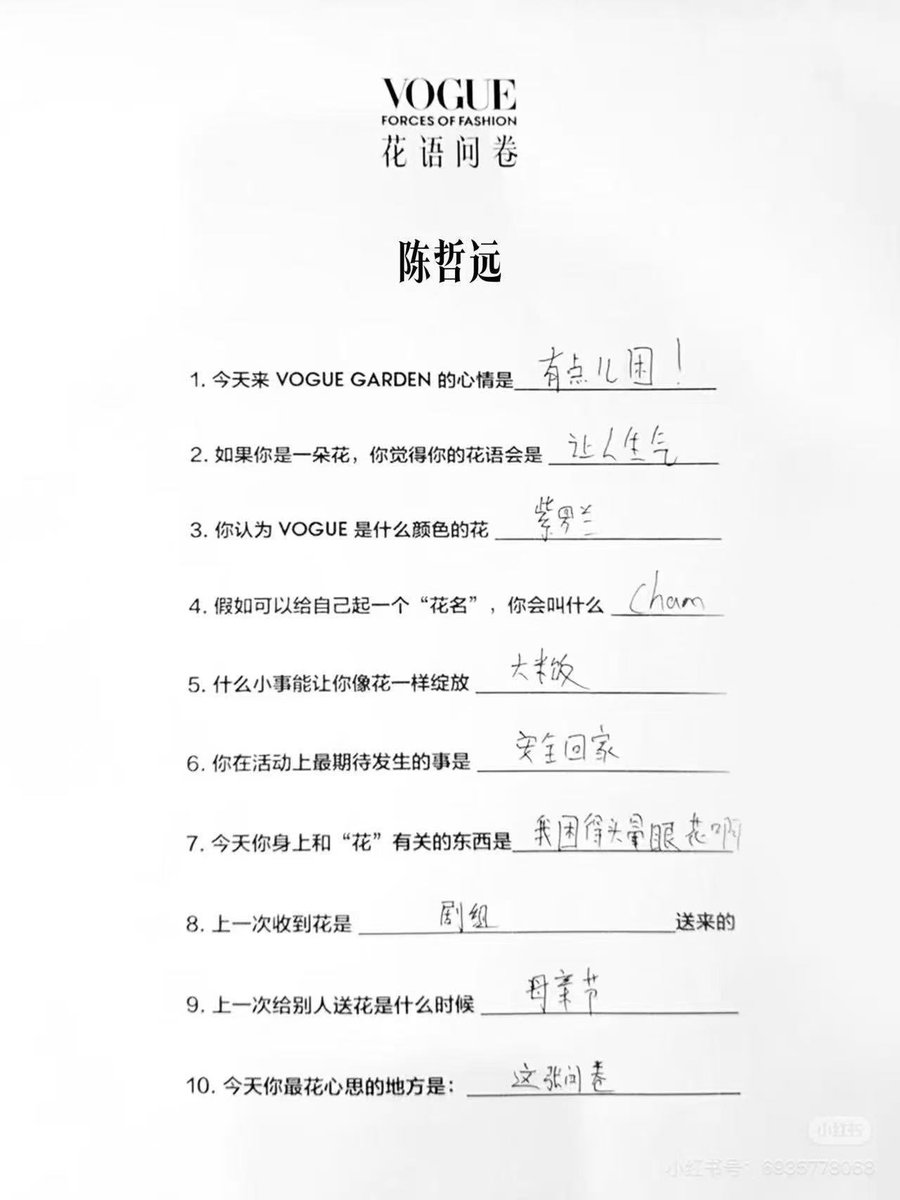 VOGUE
FORCES OF FASHION
花语问卷
陈哲远
1. 今天来 VOGUE GARDEN 的心情是 有点儿困!
2. 如果你是一朵花，你觉得你的花语会是 让人生气
3. 你认为 VOGUE 是什么颜色的花 紫罗兰
4. 假如可以给自己起一个“花名”，你会叫什么 Cham
5. 什么小事能让你像花一样绽放 大米饭
6. 你在活动上最期待发生的事是 安全回家
7. 今天你身上和“花”有关的东西是 我困得头晕眼花啊
8. 上一次收到花是 剧组 送来的
9. 上一次给别人送花是什么时候 母亲节
10. 今天你最花心思的地方是: 这张问卷
小红书
小红书号: 6935778068